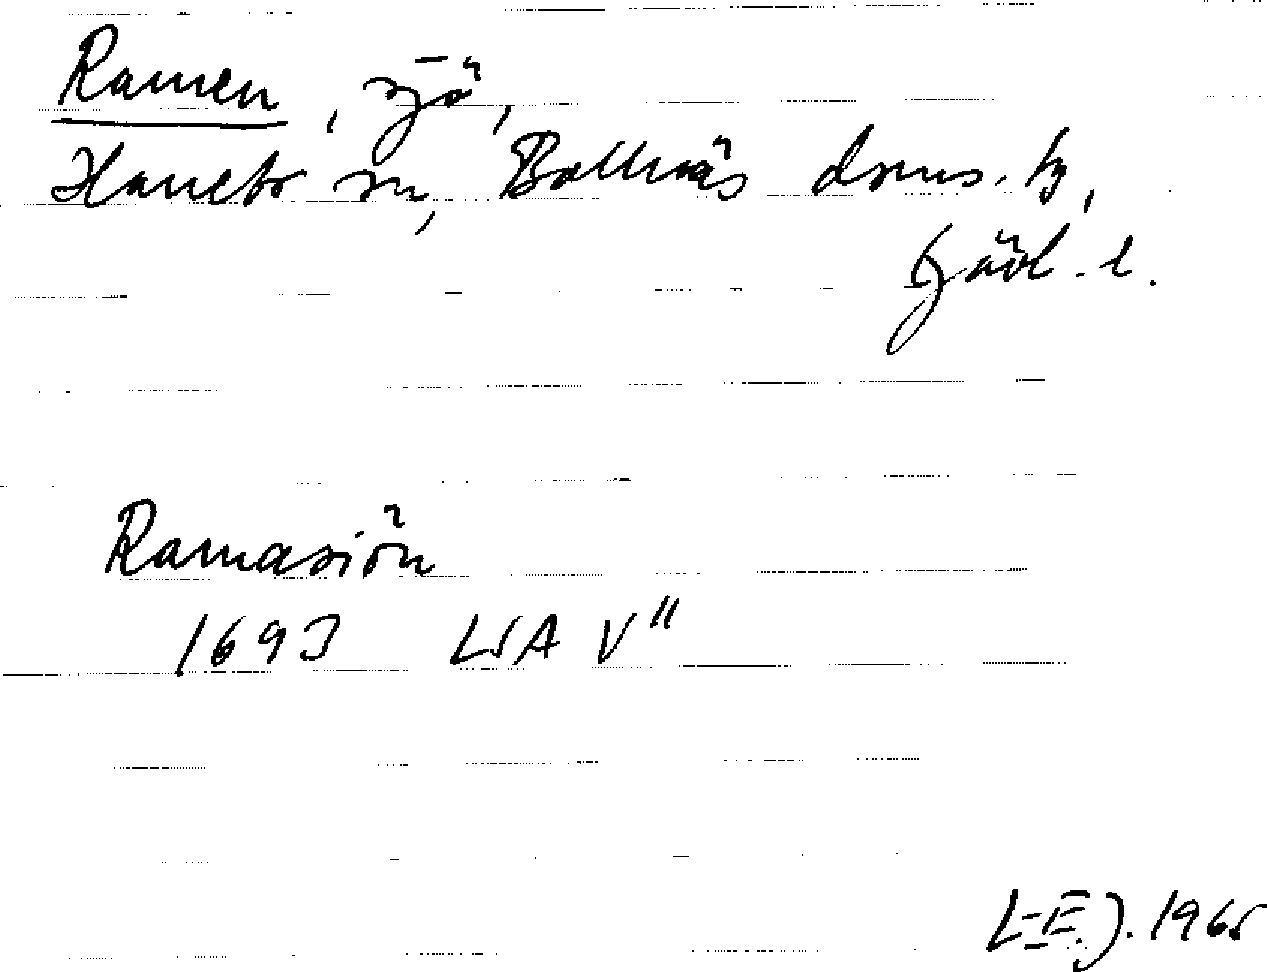 Ramen, sjö,
Hanebo sn, Bollnäs doms. hg,
Gävl. l.
Ramasiön
1693 LSA V"
L-E.J. 1965